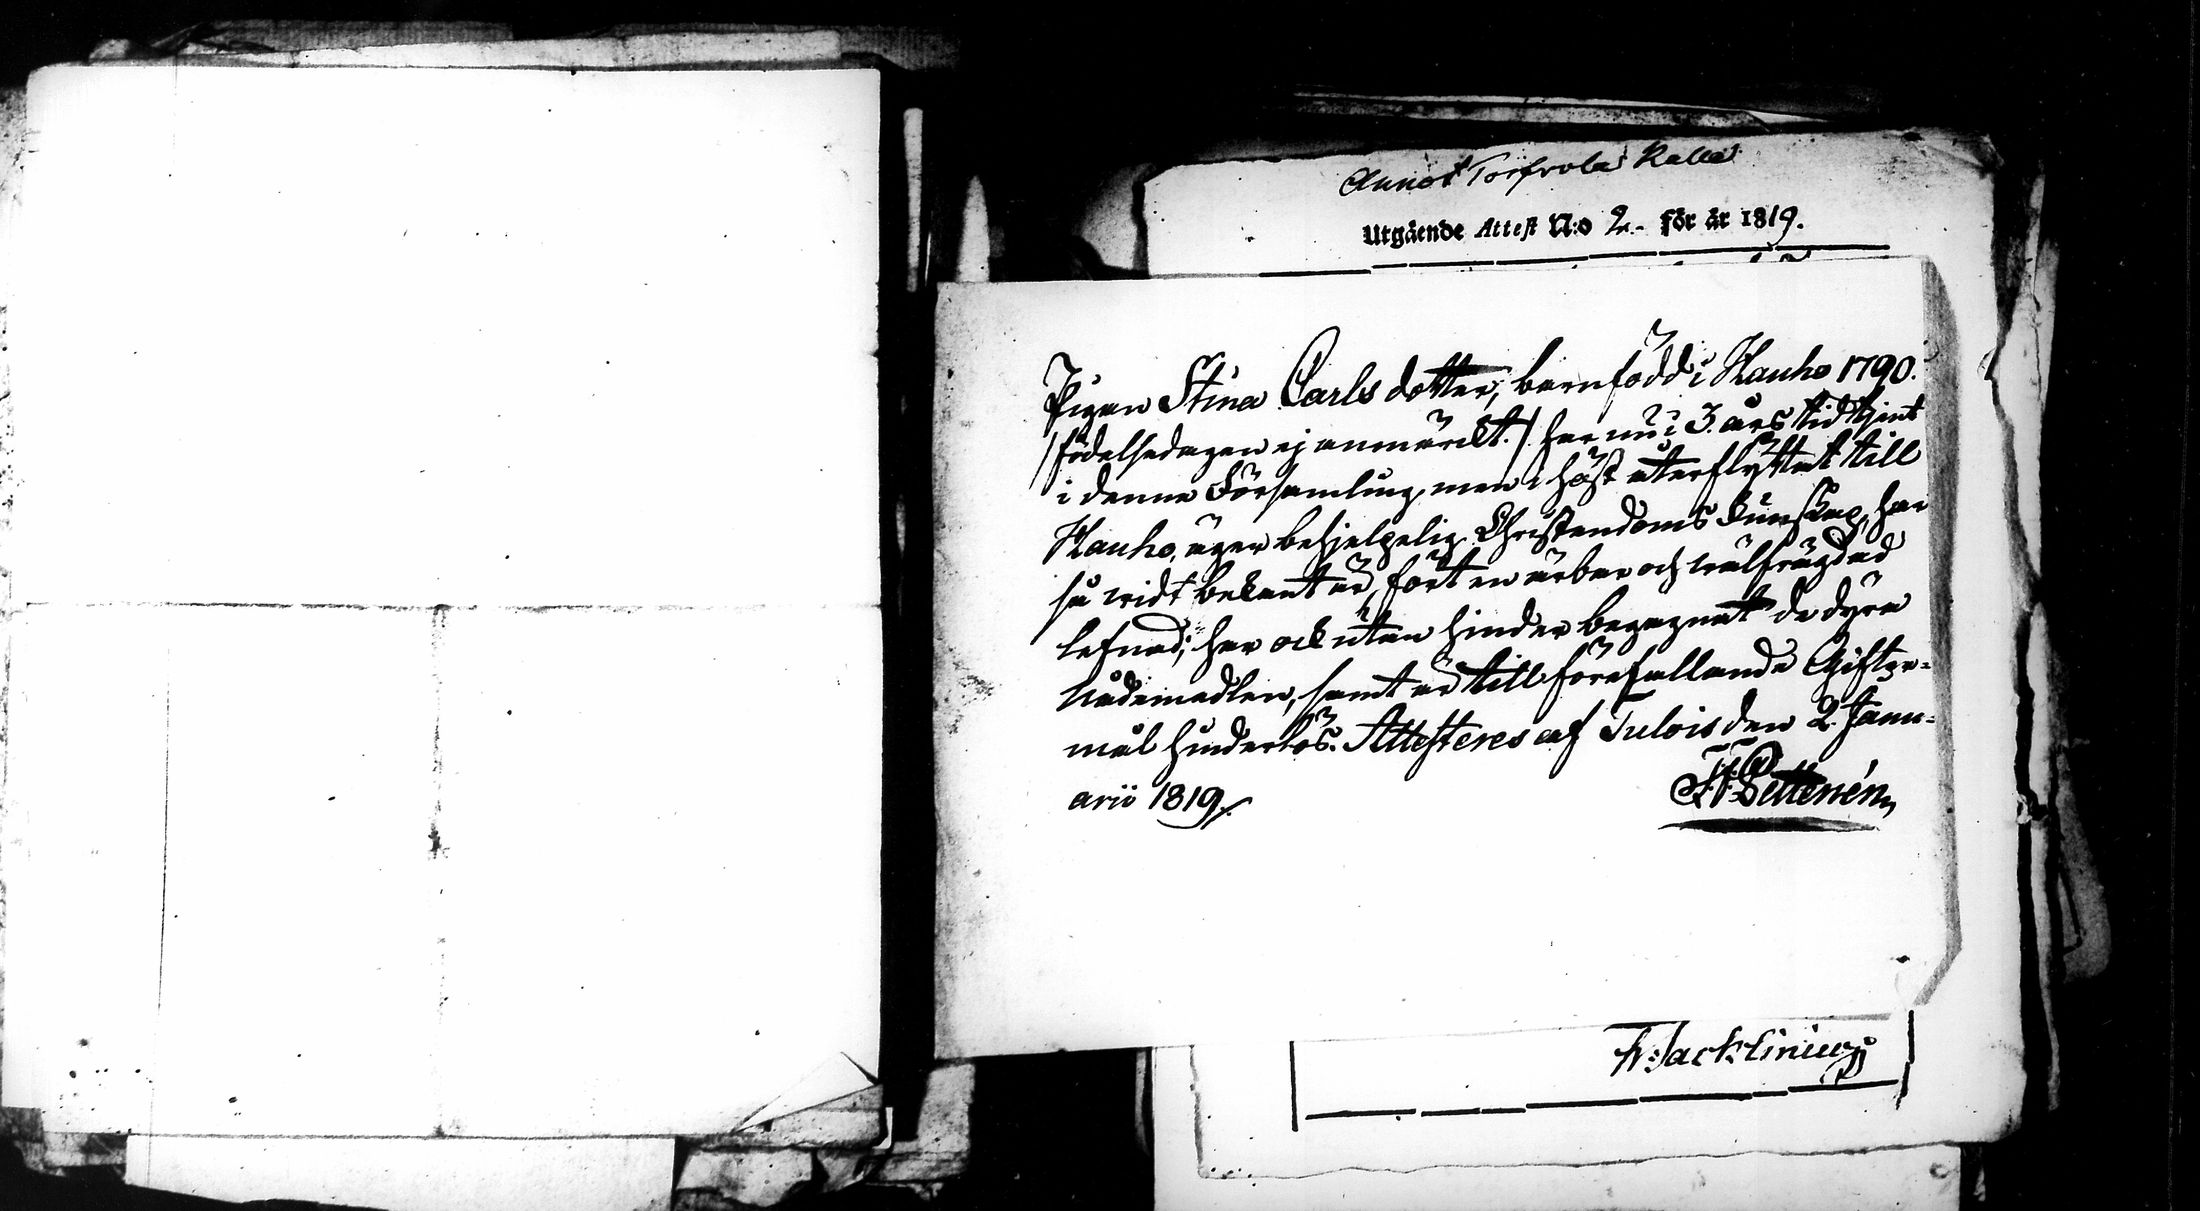 Utgående Attest N:o 2. för år 1819.
Pigan Stina Carlsdotter, barnfödd i Hauho 1790.
/födelsedagen ej anmärckt./ har nu i 3. års tid tjent
i denna Församling, men i höst återflyttat till
Hauho, äger behjelpelig Christendoms kunskap, har
så vidt bekant är, fört en ärbar och välfrägdad
lefnad; har ock utan hinder begagnat de dyra
Nådemedlen, samt är till förefallande Gifter=
mål hinderlös. Attesteres af Tulois den 2. Janu=
arii 1819.